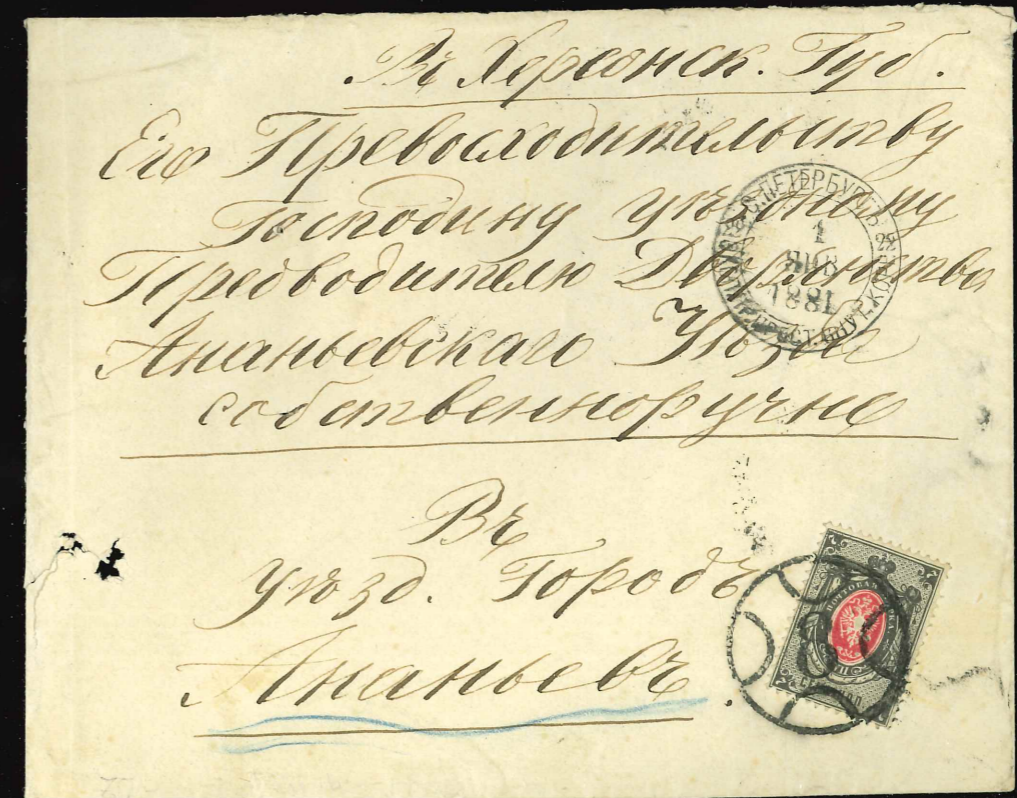 Въ Херсонск. Губ.
Его Превосходительству
Господину уѣздному
Предводителю Дворянства
Ананьевскаго Уѣзда
собственноручно
Въ
уѣзд. Городъ
Ананьевъ.
С.ПЕТЕРБУРГЪ
1
ЯНВ
1881
ПОЧТОВАЯ МАРКА